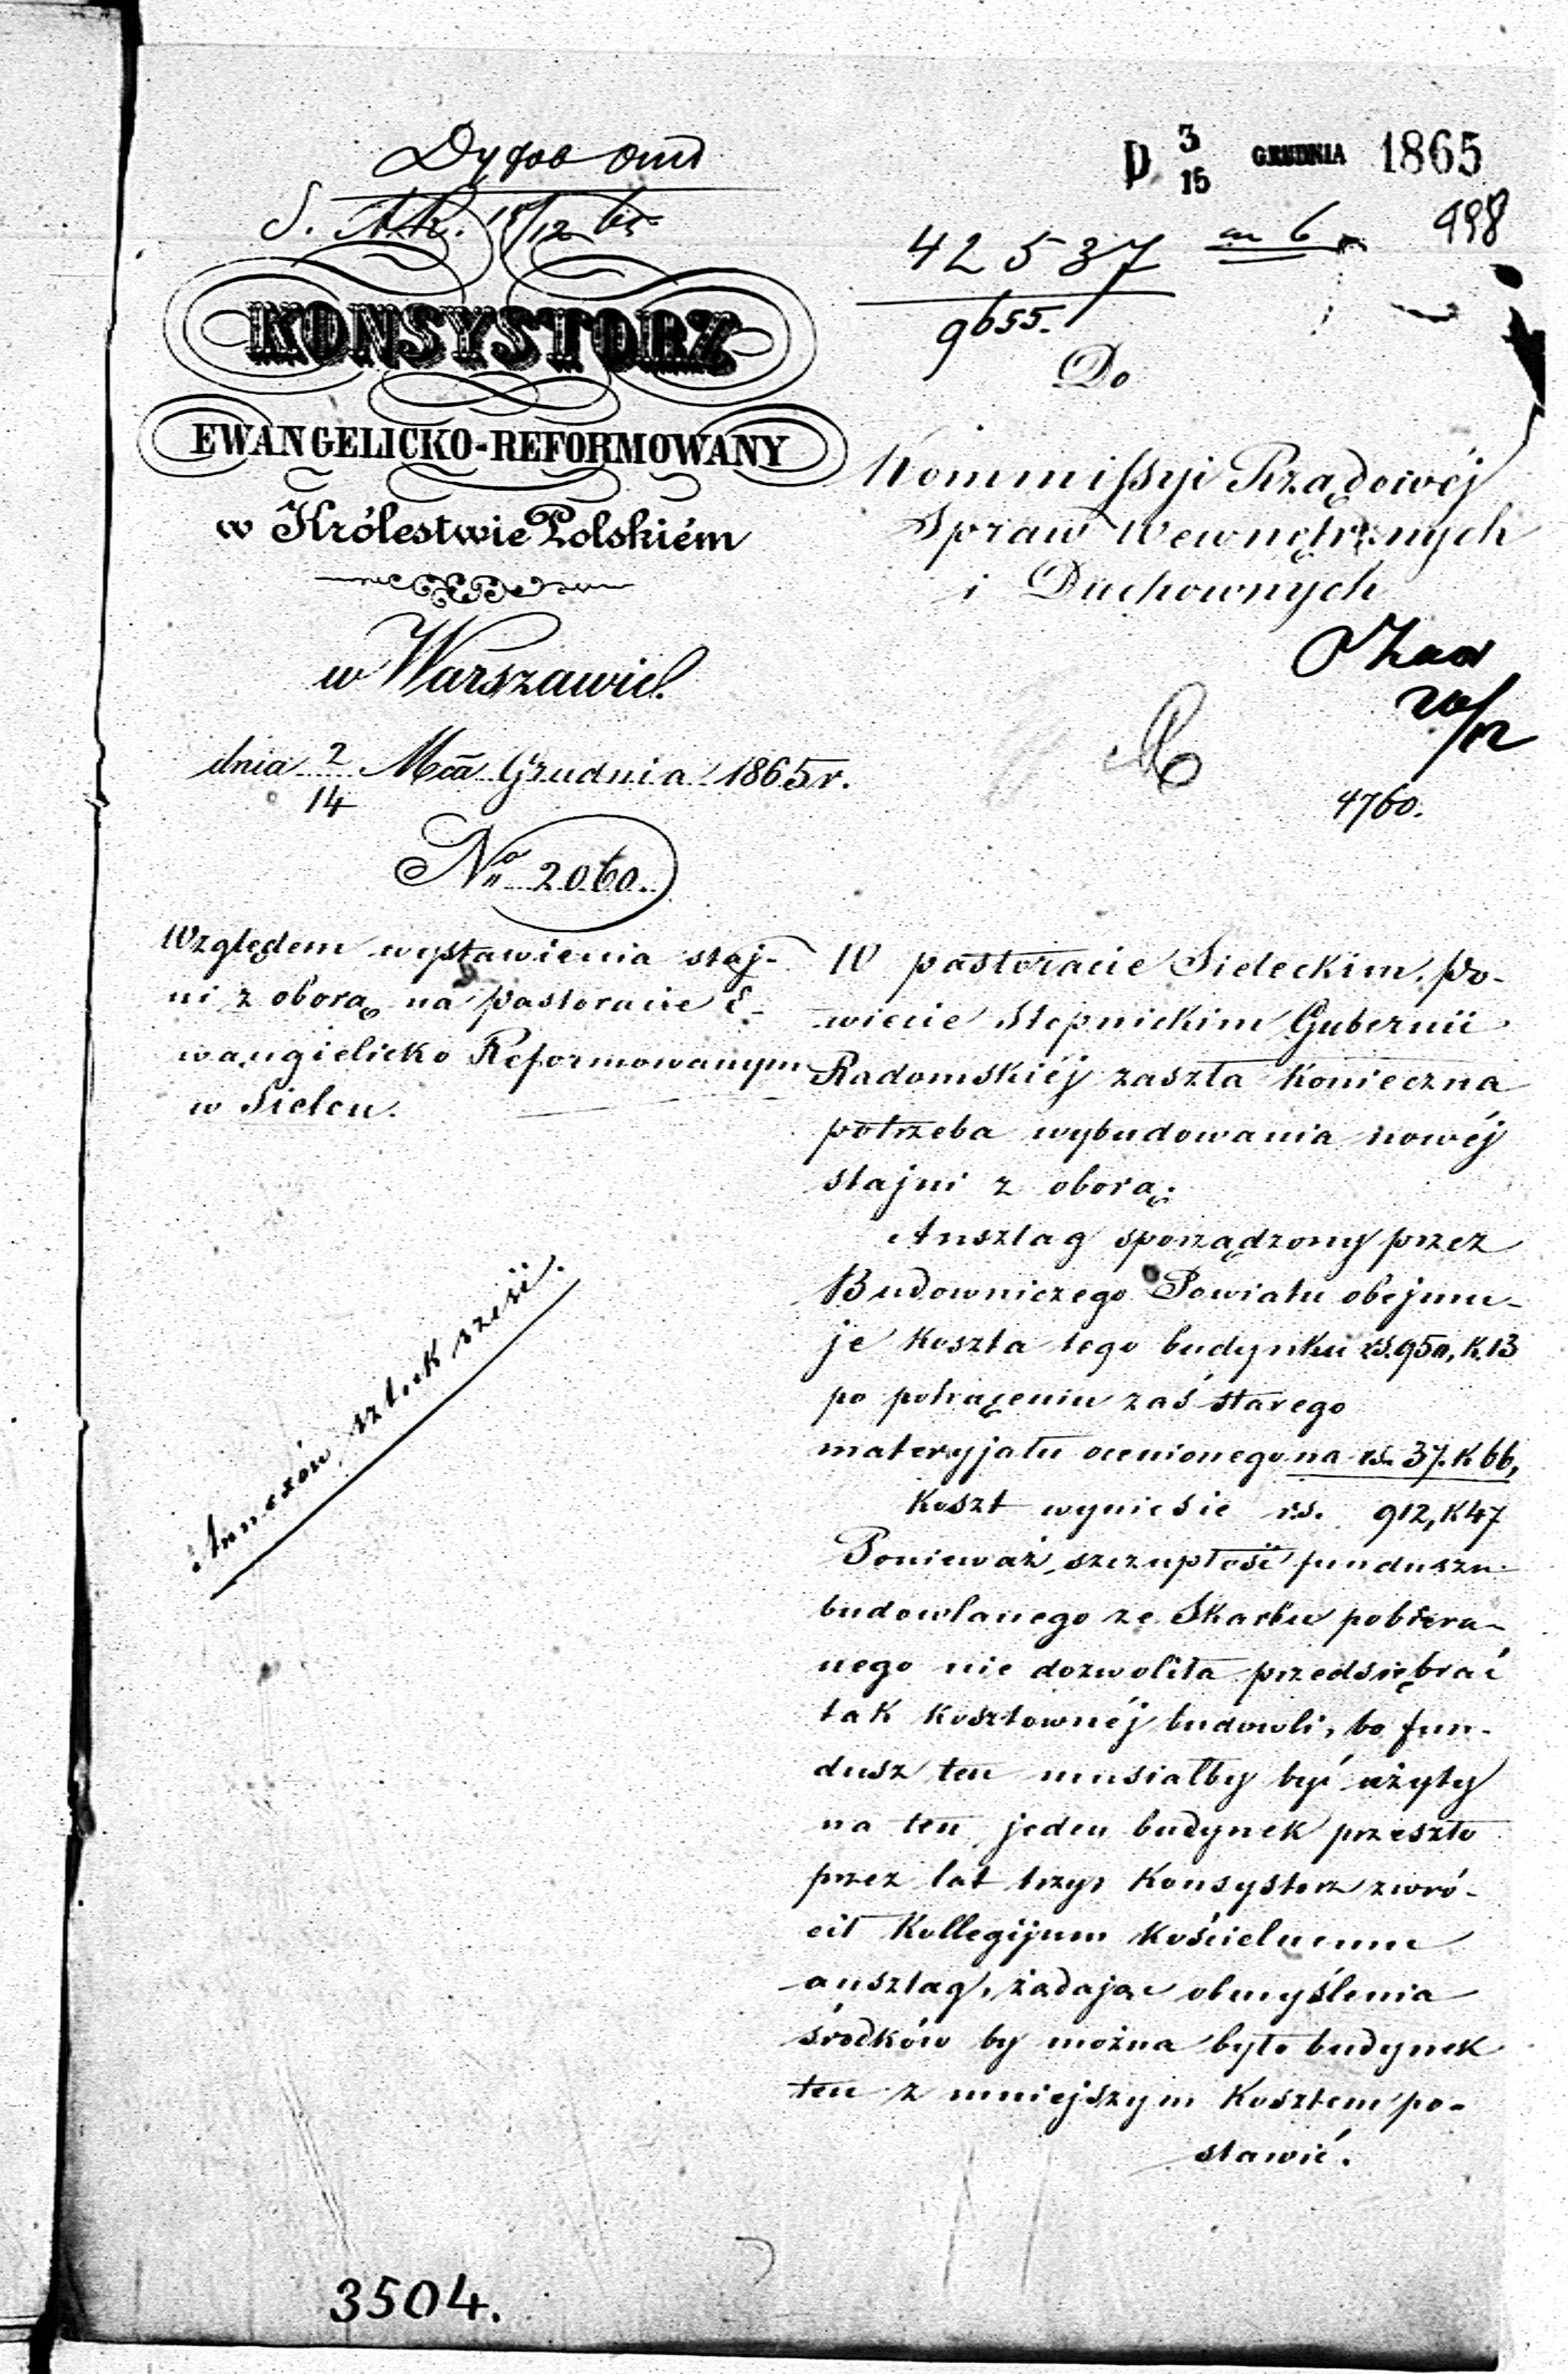 P 3/15 GRUDNIA 1865
998
42537
9655.
KONSYSTORZ
EWANGELICKO-REFORMOWANY
w Królestwie Polskiém
w Warszawie.
dnia 2/14 Mca Grudnia 1865 r.
No 2060.
Względem wystawienia staj-
ni z oborą na pastoracie E-
wangielicko Reformowanym
w Sielcu.
Annexów sztuk sześć.
Do
Kommissyi Rządowéj
Spraw Wewnętrznych
i Duchownych
20/12
4760.
W pastoracie Sieleckim, po-
wiecie Stopnickim Gubernii
Radomskiéj zaszła konieczna
potrzeba wybudowania nowéj
stajni z oborą.
Anszlag sporządzony przez
Budowniczego Powiatu obejmu-
je koszta tego budynku rs. 950, K. 13
po potrąceniu zaś starego
materyjału ocenionego na rs. 37. K 66,
koszt wyniesie rs. 912, K 47
Ponieważ szczupłość funduszu
budowlanego ze Skarbu pobiera-
nego nie dozwoliła przedsiębrać
tak kosztownéj budowli, bo fun-
dusz ten musiałby być użyty
na ten jeden budynek przeszło
przez lat trzy, Konsystorz zwró-
cił Kollegijum Kościelnemu
anszlag, żądając obmyślenia
środków by można było budynek
ten z mniejszym kosztem po-
stawić.
3504.